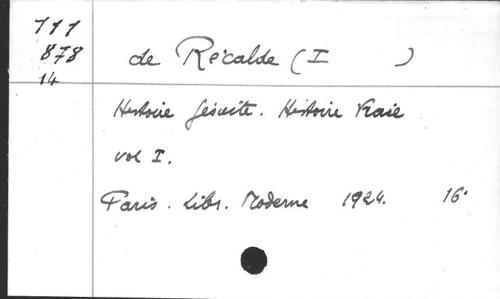 711
878
14
de Récalde (I )
Histoire Jésuite. Histoire Vraie
vol I.
Paris. Libr. Moderne 1924. 16°